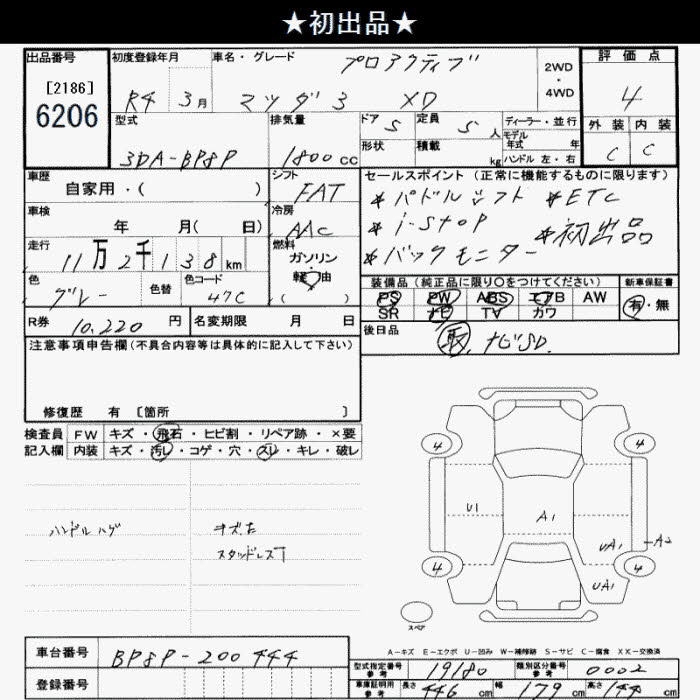 ★初出品★
出品番号
[2186]
6206
初度登録年月
R4 3月
車名・グレード
プロアクティブ
マツダ3 XD
2WD
・
4WD
評価点
4
外装 内装
C C
型式
3DA-BP8P
排気量
1800 cc
ドア 5
定員 5 人
形状
積載 kg
ディーラー・並行
モデル年式 年
ハンドル 左・右
車歴
自家用・( )
シフト
FAT
車検
年 月( 日)
冷房
AAC
走行
11万2千138km
燃料
ガソリン
軽油
( )
色
グレー
色替
色コード
47C
R券 10,220 円
名変期限 月 日
セールスポイント(正常に機能するものに限ります)
*パドルシフト *ETC
*i-stop *初出品
*バックモニター
装備品(純正品に限り○をつけてください)
PS PW ABS エアB AW
SR ナビ TV カワ
新車保証書
有・無
後日品
取, ナビSD.
注意事項申告欄(不具合内容等は具体的に記入して下さい)
修復歴 有 〔箇所 〕
検査員
記入欄
FW キズ・飛石・ヒビ割・リペア跡・×要
内装 キズ・汚レ・コゲ・穴・スレ・キレ・破レ
ハンドルハゲ
キズ古
スタッドレスT
4 4
U1 A1
UA1 A2
4 4
UA1
スペア
A-キズ E-エクボ U-凹み W-補修跡 S-サビ C-腐食 XX-交換済
車台番号 BP8P-200444
登録番号
型式指定番号 参考 19180
類別区分番号 参考 0002
車庫証明用 参考 長さ 446 cm 幅 179 cm 高さ 144 cm